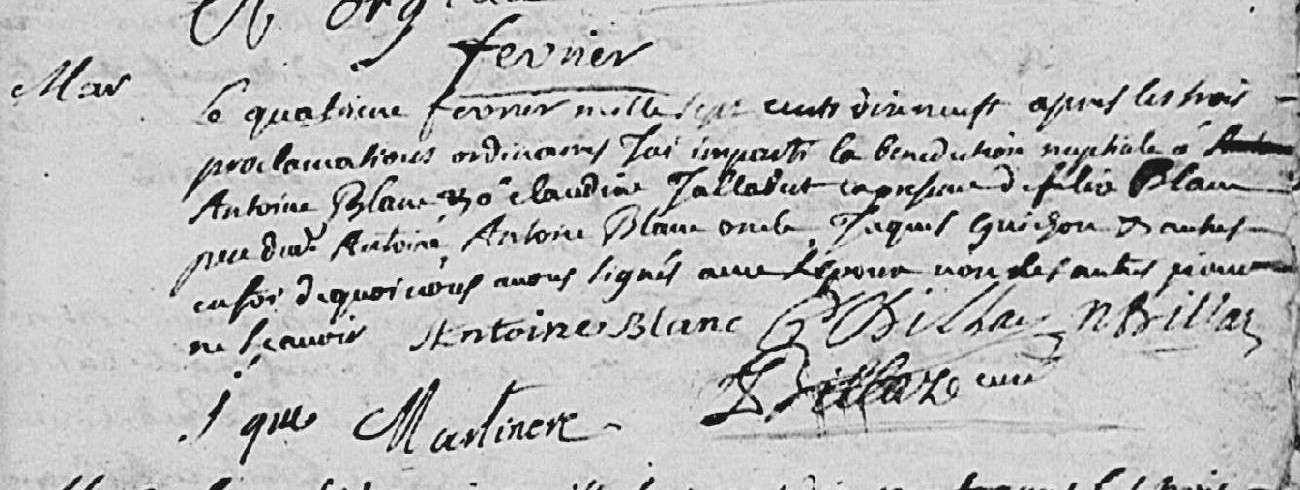 fevrier
Mar
Le quatorieme fevrier mille sept cents dixneuf apres les trois
proclamations ordinaires J'ai imparti la benediction nuptiale a
Antoine Blanc & a claudine Jallabut en presence de felix Blanc
pere dud Antoine, Antoine Blanc oncle, Jaques & autres
en foi dequoi nous avons signés avec L'epoux non les autres pour
ne sçavoir Antoine Blanc Billaz Billaz
Martinere Billaz curé